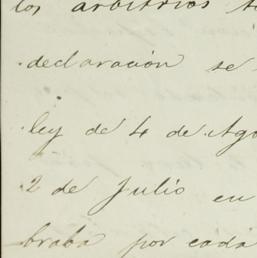 los arbitrios
declaración se
ley de 4 de Ago
2 de Julio en
braba por cada